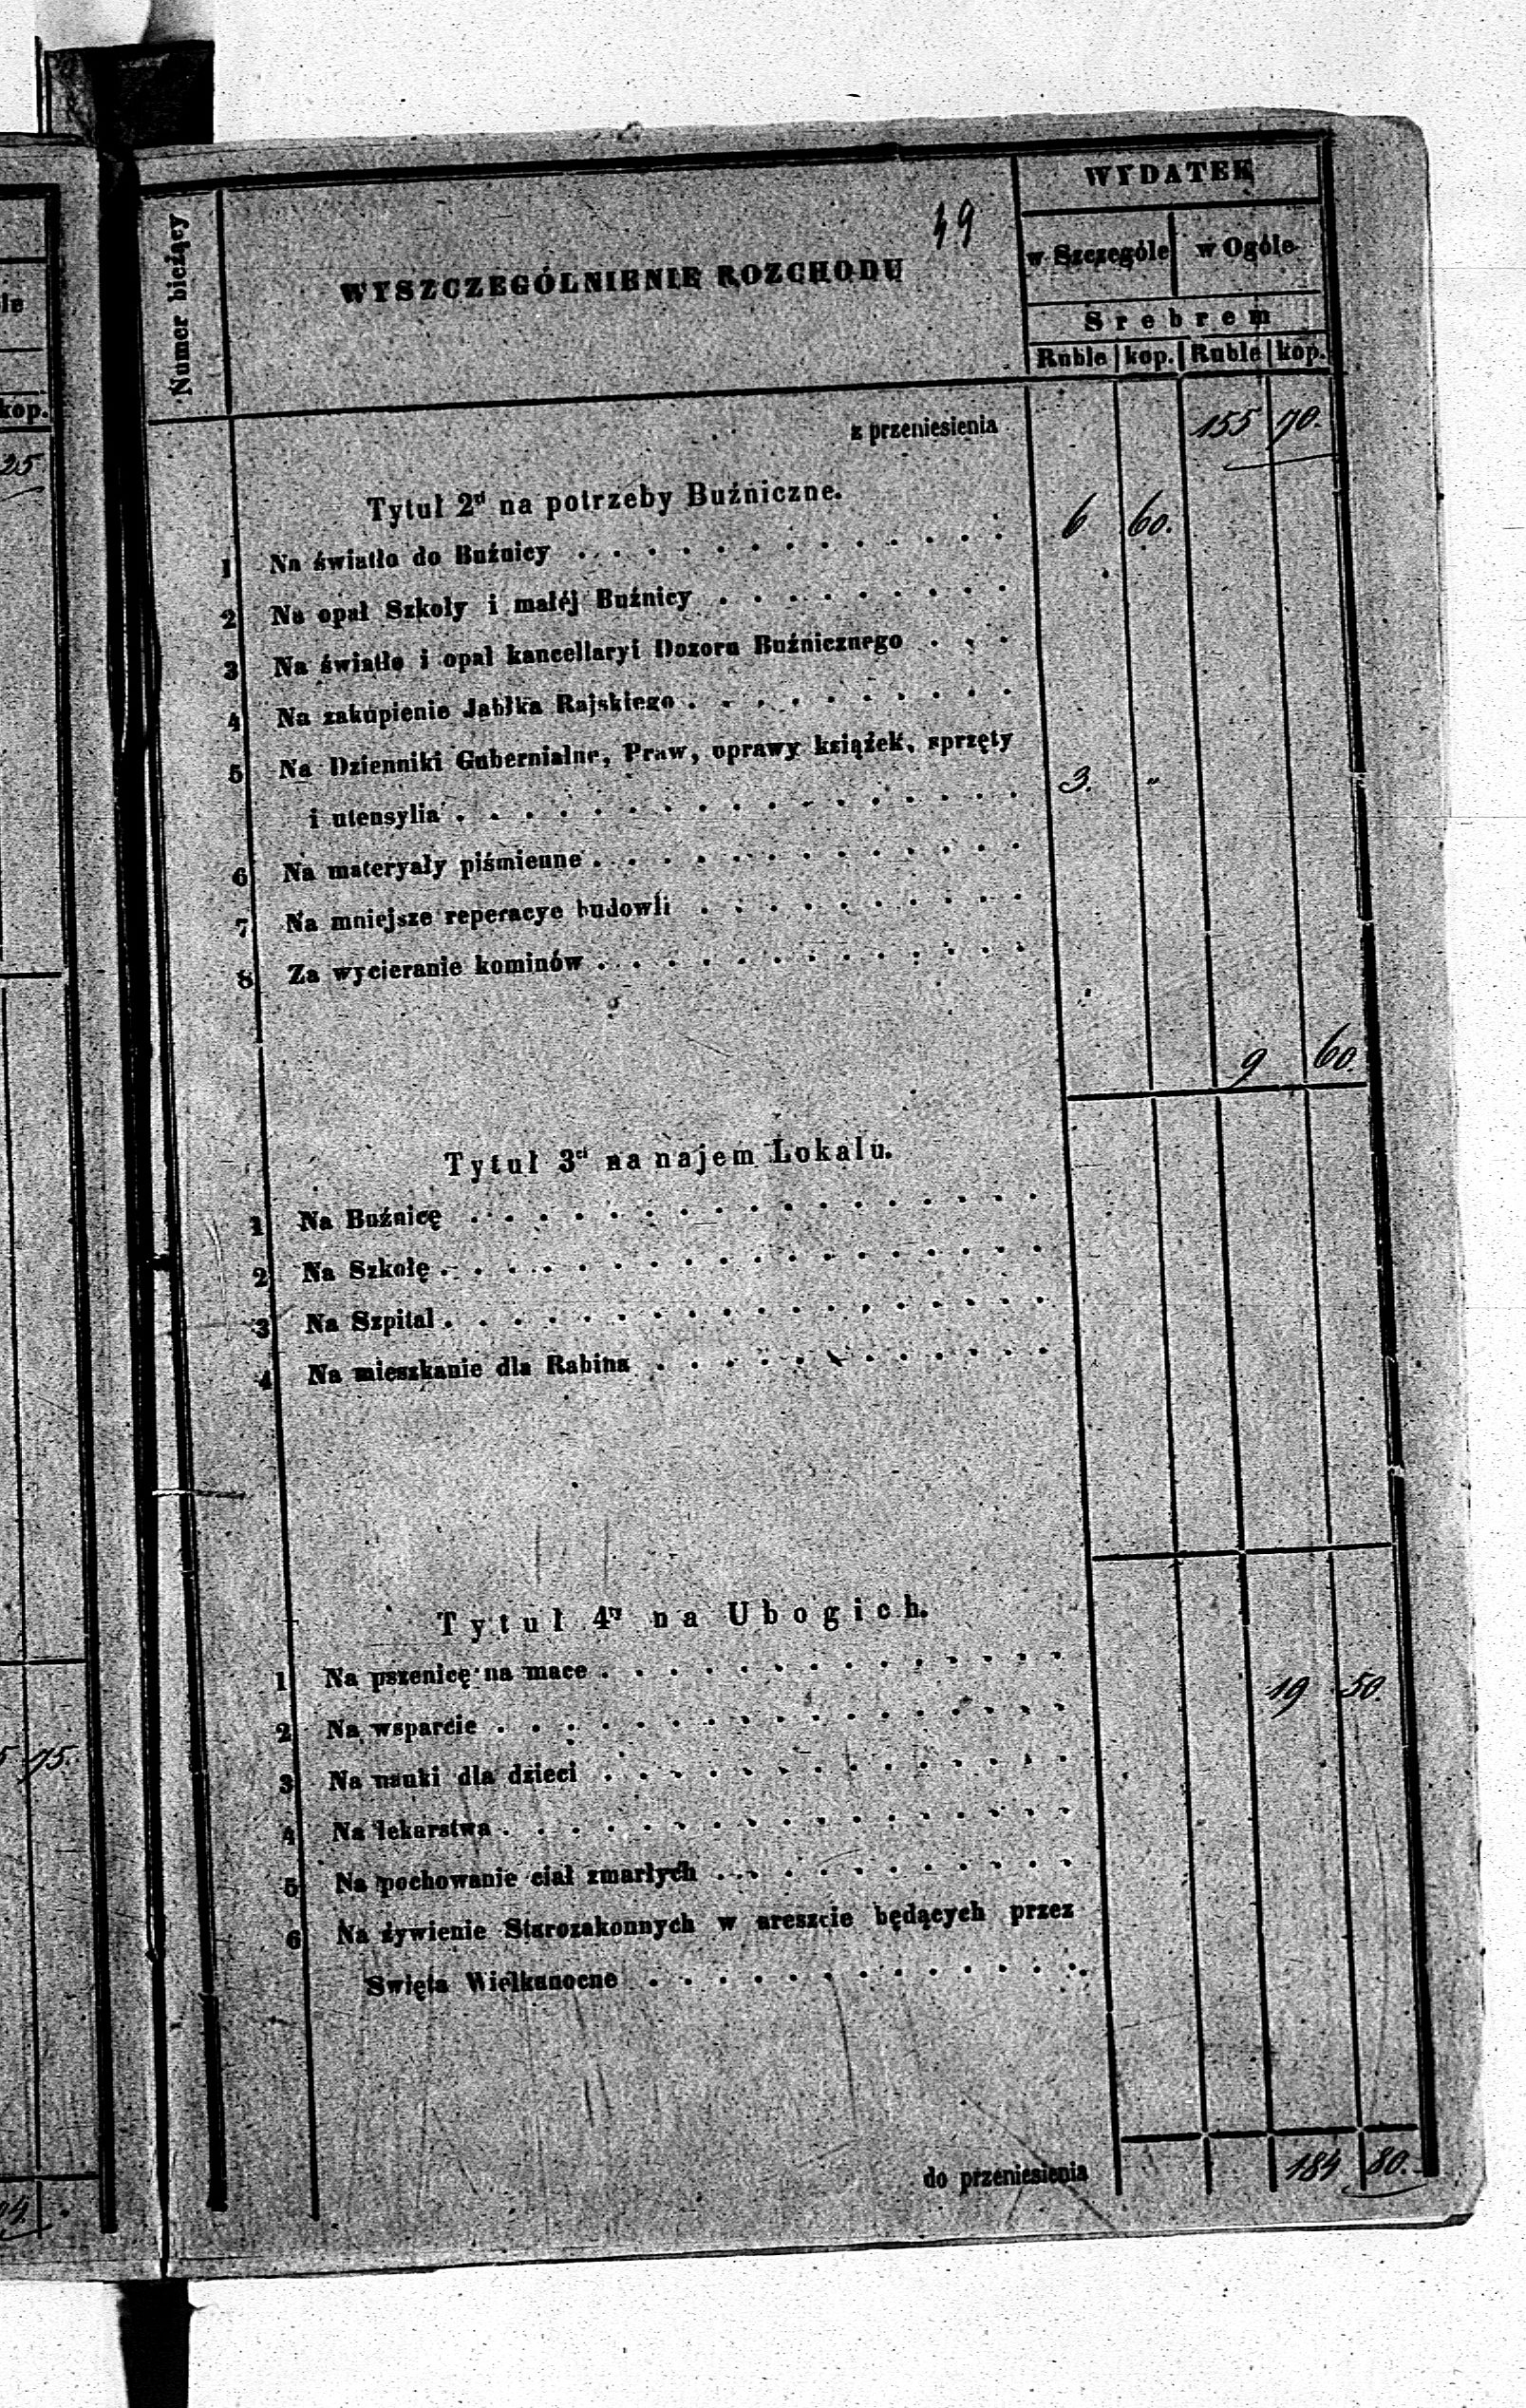 WYDATEK
49
Numer bieżący
WYSZCZEGÓLNIENIE ROZCHODU
w Szczególe w Ogóle
Srebrem
Ruble kop. Ruble kop.
z przeniesienia 155 70.
Tytuł 2gi na potrzeby Buźniczne.
1 Na światło do Buźnicy . . . . . . . . . . . . . 6 60.
2 Na opał Szkoły i małéj Buźnicy . . . . . . . . .
3 Na światło i opał kancellaryi Dozoru Buźnicznego . . .
4 Na zakupienie Jabłka Rajskiego . . . . . . . . . .
5 Na Dzienniki Gubernialne, Praw, oprawy książek, sprzęty
i utensylia . . . . . . . . . . . . . . . . . 3. "
6 Na materyały piśmienne . . . . . . . . . . . . .
7 Na mniejsze reperacye budowli . . . . . . . . . .
8 Za wycieranie kominów . . . . . . . . . . . . .
9 60.
Tytuł 3ci na najem Lokalu.
1 Na Buźnicę . . . . . . . . . . . . . . . . .
2 Na Szkołę . . . . . . . . . . . . . . . . . .
3 Na Szpital . . . . . . . . . . . . . . . . . .
4 Na mieszkanie dla Rabina . . . . . . . . . . . .
Tytuł 4ty na Ubogich.
1 Na pszenicę na mace . . . . . . . . . . . . . . 19 50.
2 Na wsparcie . . . . . . . . . . . . . . . . .
3 Na nauki dla dzieci . . . . . . . . . . . . . .
4 Na lekarstwa . . . . . . . . . . . . . . . . .
5 Na pochowanie ciał zmarłych . . . . . . . . . . .
6 Na żywienie Starozakonnych w areszcie będących przez
Swięta Wielkanocne . . . . . . . . . . . . .
do przeniesienia 184 80.
kop.
25
75.